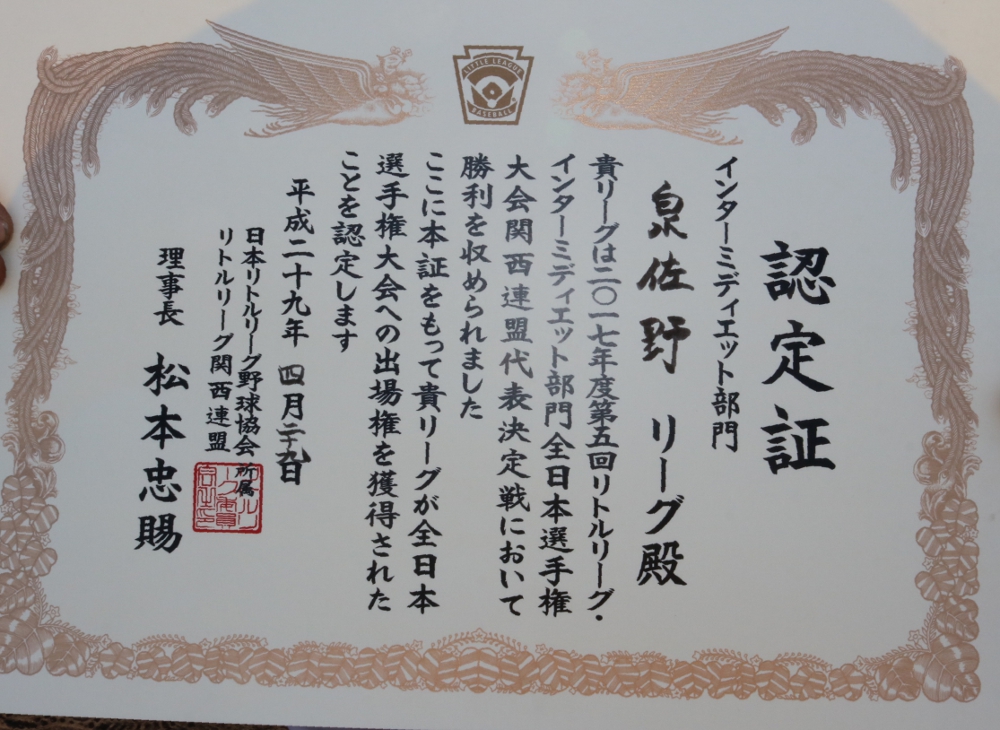 LITTLE LEAGUE
BASEBALL
認定証
インターミディエット部門
泉佐野 リーグ殿
貴リーグは二〇一七年度第五回リトルリーグ・
インターミディエット部門全日本選手権
大会関西連盟代表決定戦において
勝利を収められました
ここに本証をもって貴リーグが全日本
選手権大会への出場権を獲得された
ことを認定します
平成二十九年 四月二十九日
日本リトルリーグ野球協会所属
リトルリーグ関西連盟
理事長 松本忠賜